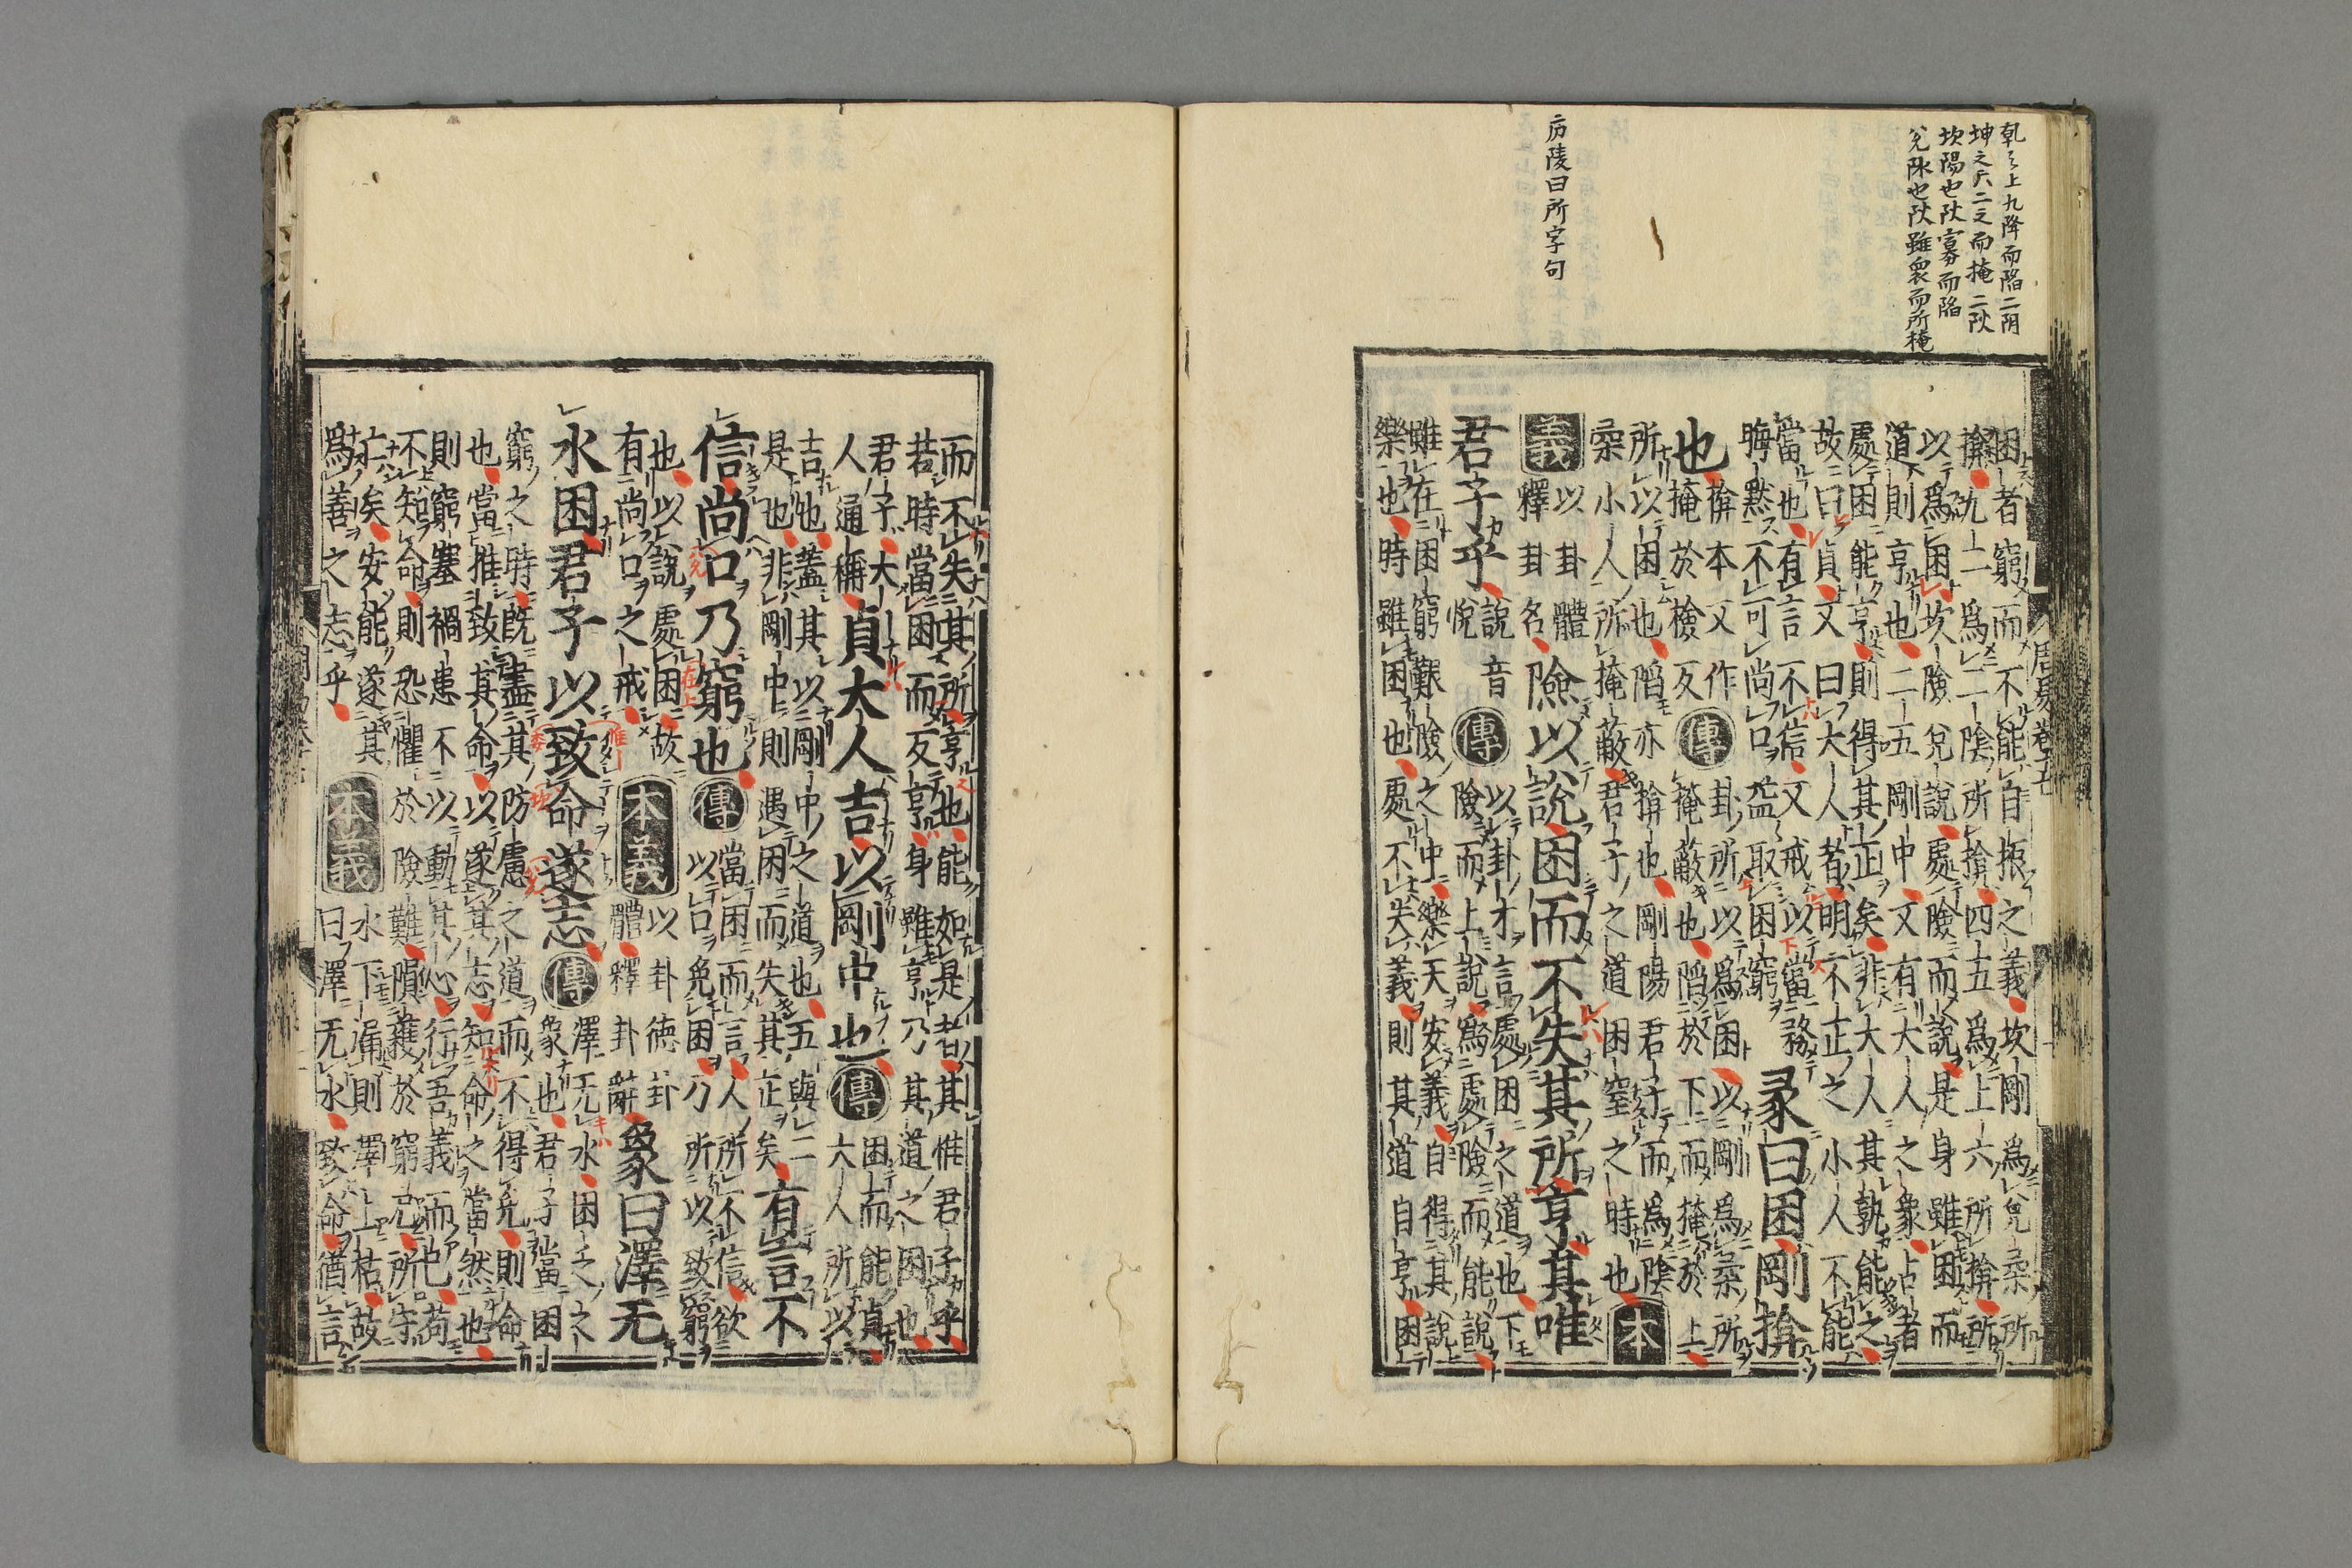 乾之上九降而陷二阴
坤之六二之而掩二阦
坎陽也阦寡而陷
兌阥也阦雖衆而所掩
庐陵曰所字句
周易卷十五
困者窮而不能自振之義坎剛為兌柔所
揜九二為二陰所揜四五為上六所揜所
以為困坎險兌說處險而說是身雖困而
道則亨也二五剛中又有大人之象占者
處困能亨則得其正矣非大人其孰能之
故曰貞又曰大人者明不正之小人不能
當也有言不信又戒以當務
晦黙不可尚口益取困窮
彖曰困剛揜
也
揜本又作
掩於檢反
傳
卦所以為困以剛為柔所
掩蔽也陷於下而掩於上
所以困也陷亦揜也剛陽君子而為陰
柔小人所掩蔽君子之道困窒之時也
本
義
以卦體
釋卦名
險以說困而不失其所亨其唯
君子乎
說音
悅
傳
以卦才言處困之道也下
險而上說為處險而能說
雖在困窮艱險之中樂天安義自得其說
樂也時雖困也處不失義則其道自亨困
而不失其所亨也能如是者其惟君子乎
若時當困而反亨身雖亨乃其道之困也
君子大
人通稱
貞大人吉以剛中也
傳
困而能貞
大人所以
吉也蓋其以剛中之道也五與二
是也非剛中則遇困而失其正矣
有言不
信尚口乃窮也
傳
當困而言人所不信欲
以口免困乃所以致窮
也以說處困故
有尚口之戒
本義
以卦德卦
體釋卦辭
象曰澤无
水困君子以致命遂志
傳
澤无水困乏之
象也君子當困
窮之時既盡其防慮之道而不得免則命
也當推致其命以遂其志知命之當然也
則窮塞禍患不以動其心行吾義而已苟
不知命則恐懼於險難隕穫於窮戹所守
亡矣安能遂其
為善之志乎
本義
水下漏則澤上枯故
曰澤无水致命猶言